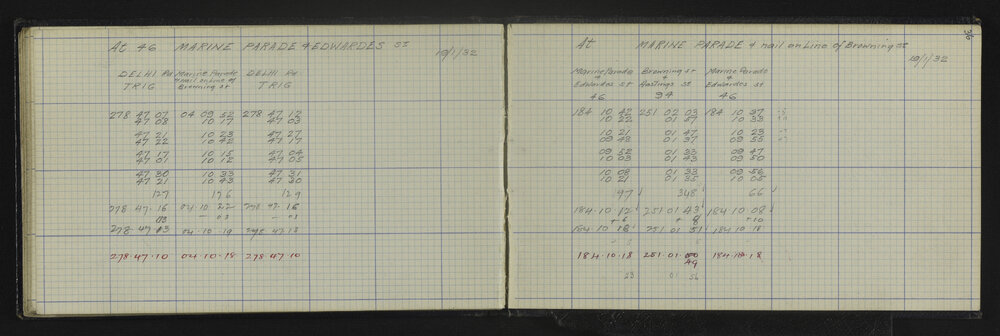 At 46 MARINE PARADE & EDWARDES ST
19/1/32
DELHI Rd Marine Parade DELHI Rd
TRIG & nail on Line of TRIG
Browning St
278 47 07 04 09 52 278 47 12
47 08 10 17 47 09
47 21 10 23 47 27
47 22 10 42 47 17
47 17 10 15 47 04
47 01 10 12 47 05
47 30 10 33 47 31
47 21 10 43 47 30
127 176 129
278·47·16 04·10·22 278·47·16
03 - 03 - 03
278·47·13 04·10·19 278·47·13
278·47·10 04·10·18 278·47·10
36
At MARINE PARADE & nail on Line of Browning St
19/1/32
Marine Parade Browning St Marine Parade
& & &
Edwardes St Hastings St Edwardes St
46 94 46
184 10 42 251 02 03 184 10 37
10 22 01 57 10 33
10 21 01 47 10 23
09 48 01 37 09 55
09 52 01 33 09 47
10 03 01 43 09 50
10 08 01 33 09 56
10 21 01 35 10 05
97 348 66
184·10·12 251·01·43 184·10·08
+ 6 + 8 +10
184·10·18 251·01·51 184·10·18
184·10·18 251·01·50 184·10·18
49
23 01 54